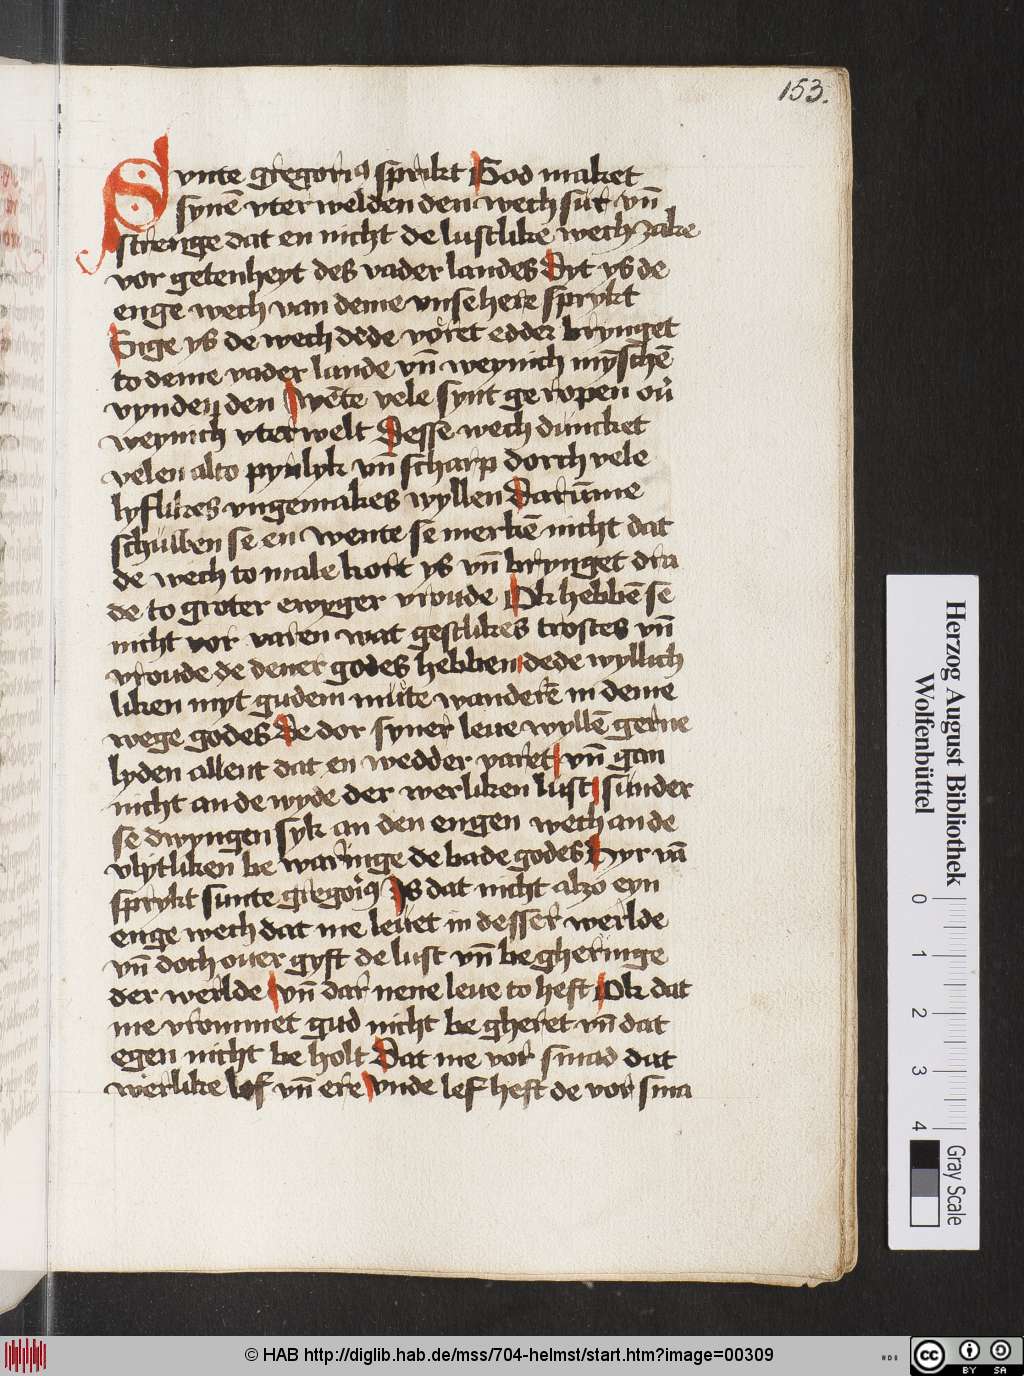 153.
Synte gregori9 sprikt God maket
synē vterwelden den wech sur vn̄
strenge dat en nicht de lustlike wech zake
vor getenheyt des vader landes Dyt ys de
enge wech van deme vnse here sprykt
Enge ys de wech dede voret edder brynget
to deme vader lande vn̄ weynich mȳschē
vynden den Wēte vele synt geropen ou᷑
weynich vterwelt Desse wech duncket
velen alto pynlyk vn̄ scharp dorch vele
lyflikes vngemakes wyllen Darūme
schuwen se en wente se merkē nicht dat
de wech to male kort ys vn̄ brynget dra
de to groter ewyger vroude Ok hebbē se
nicht vor varen wat gestlikes trostes vn̄
vroude de dener godes hebben dede wyllich
liken myt gudem mute wanderē in deme
wege godes De dor syner leue wyllē gerne
lyden allent dat en wedder varet vn̄ gan
nicht an de wyde der werliken lust sunder
se dwyngen syk an den engen wech an de
vlytliken be waringe de bade godes Hyr vā
sprykt sunte gregori9 Is dat nicht alzo eyn
enge wech dat me leuet in desser werlde
vn̄ doch ouer gyft de lust vn̄ be gheringe
der werlde vn̄ dar nene leue to heft Ok dat
me vrommet gud nicht be gheret vn̄ dat
egen nicht be holt Dat me vor smad dat
werlike lof vn̄ ere vnde lef heft de vor sma
Herzog August Bibliothek
Wolfenbüttel
0 1 2 3 4
Gray Scale
© HAB http://diglib.hab.de/mss/704-helmst/start.htm?image=00309
cc BY SA